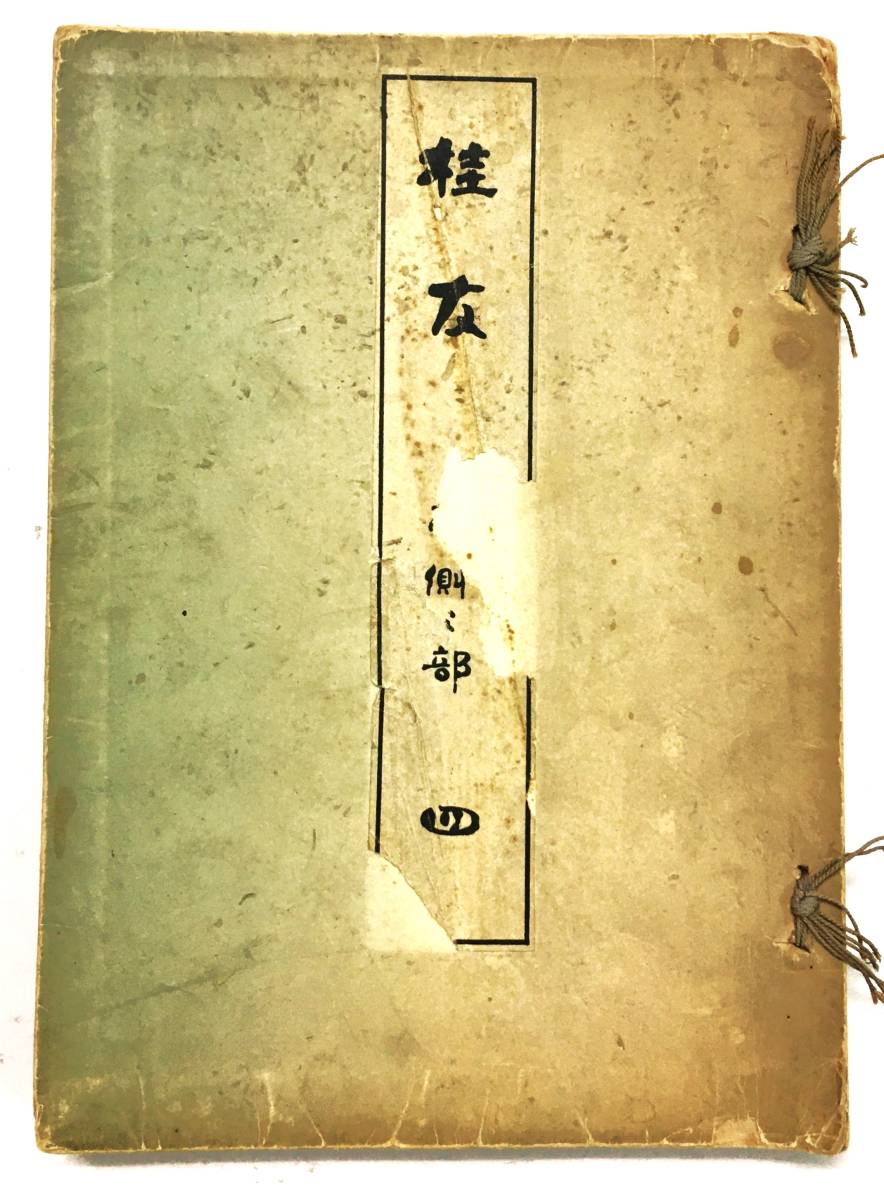 桂友 側之部 四